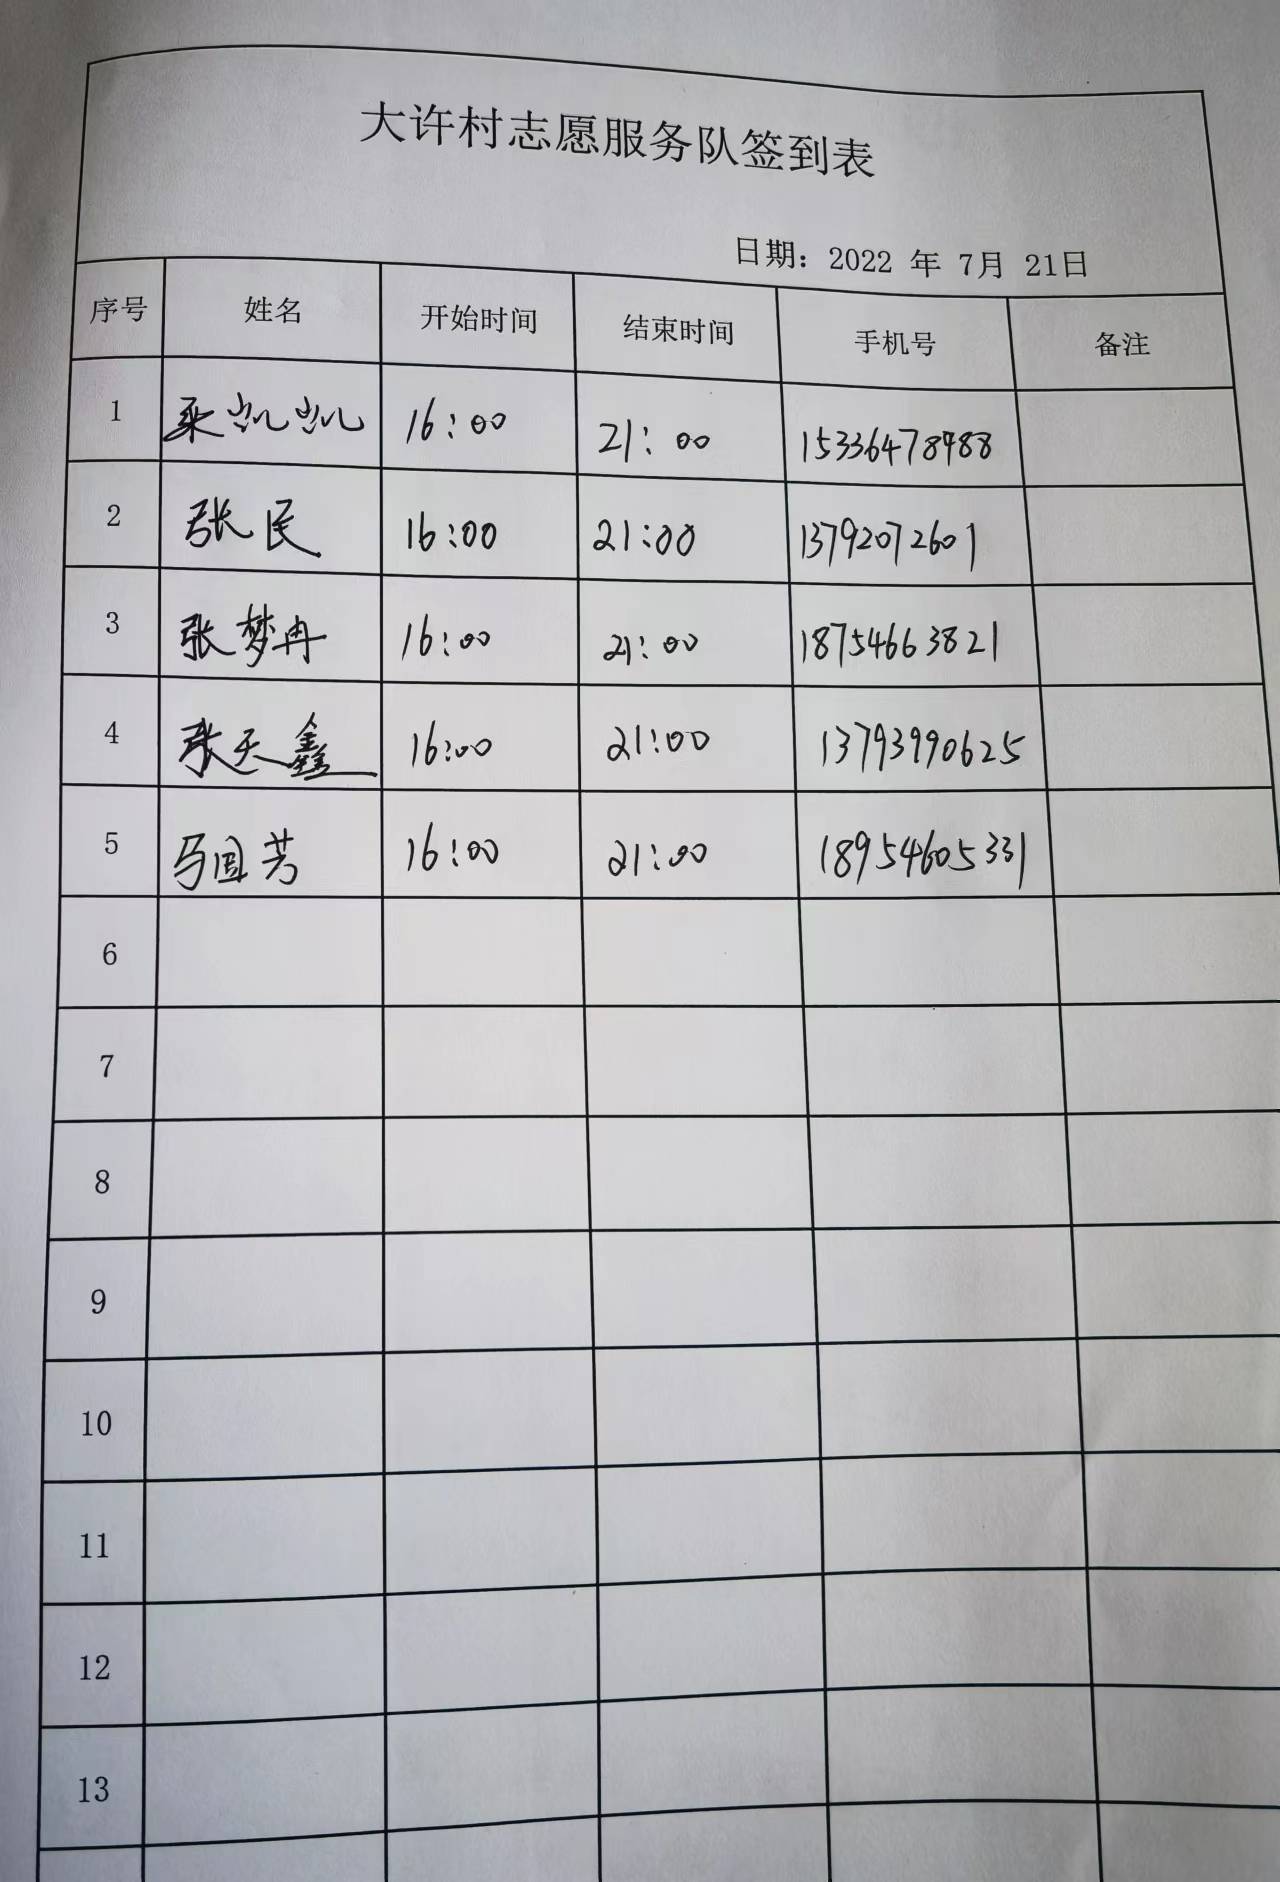 大许村志愿服务队签到表
日期：2022 年 7月 21日
序号 姓名 开始时间 结束时间 手机号 备注
1 凯凯 16:00 21:00 15336478988
2 张民 16:00 21:00 13792072601
3 张梦冉 16:00 21:00 18754663821
4 张天鑫 16:00 21:00 13793990625
5 马国芳 16:00 21:00 18954605331
6
7
8
9
10
11
12
13